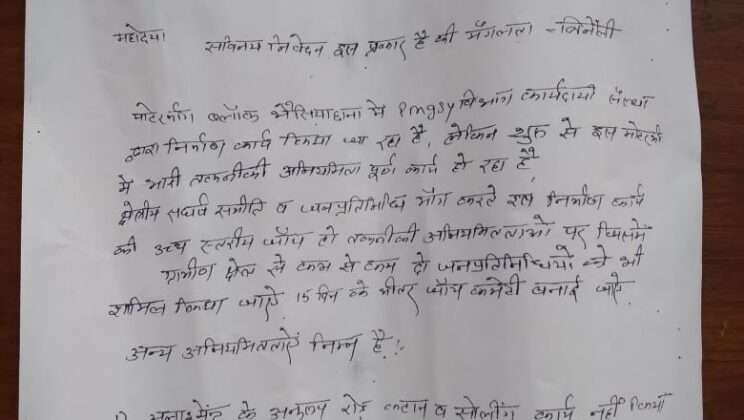 महोदया
सविनय निवेदन इस प्रकार है की मंगलता - त्रिनेली
मोटरमार्ग ब्लॉक भैसियाछाना मे Pmgsy विभाग कार्यदायी संस्था
द्वारा निर्माण कार्य किया जा रहा है, लेकिन शुरू से इस मोटरमार्ग
मे भारी तकनीकी अनियमिता पूर्ण कार्य हो रहा है,
क्षेत्रीय संघर्ष समीति व जनप्रतिनिधि माँग करते इस निर्माण कार्य
की उच्च स्तरीय जाँच हो तकनीकी अनियमितताओं पर जिसमें
ग्रामीण क्षेत्र से कम से कम दो जनप्रतिनिधियो को भी
शामिल किया जाऐ. 15 दिन के भीतर जाँच कमेटी बनाई जाऐ
अन्य अनियमितताऐं निम्न है!.
1) के अनुरूप रोड़ कटान व सोलींग कार्य नहीं किया